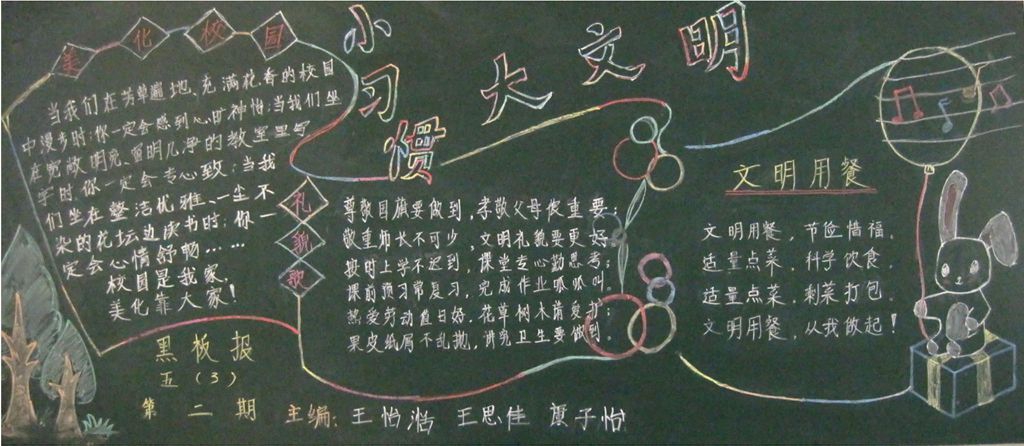 小习惯大文明
美化校园
当我们在芳草遍地，充满花香的校园
中漫步时，你一定会感到心旷神怡；当我们坐
在宽敞明亮、窗明几净的教室里写
字时，你一定会专心致；当我
们坐在整洁优雅、一尘不
染的花坛边读书时，你一
定会心情舒畅……
校园是我家，
美化靠大家！
黑板报
五（3）
第二期
礼貌歌
尊敬国旗要做到，孝敬父母很重要；
敬重师长不可少，文明礼貌要更好；
按时上学不迟到，课堂专心勤思考；
课前预习常复习，完成作业呱呱叫。
热爱劳动值日好，花草树木需爱护；
果皮纸屑不乱抛，讲究卫生要做到。
主编：王怡 王思佳 子怡
文明用餐
文明用餐，节俭惜福。
适量点菜，科学饮食。
适量点菜，剩菜打包。
文明用餐，从我做起！